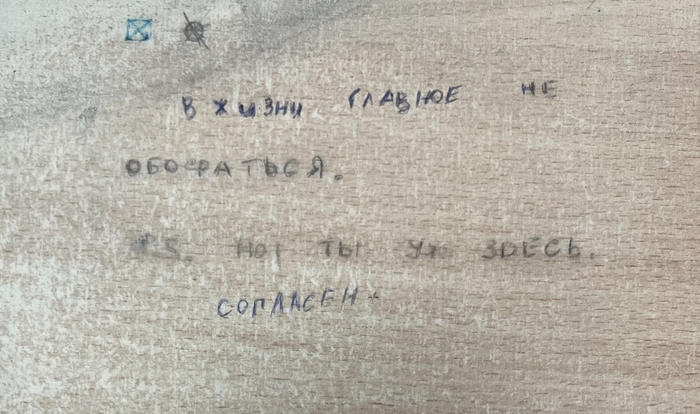 В ЖИЗНИ ГЛАВНОЕ НЕ
ОБОСРАТЬСЯ.
P.S. НО ТЫ УЖ ЗДЕСЬ.
СОГЛАСЕН +